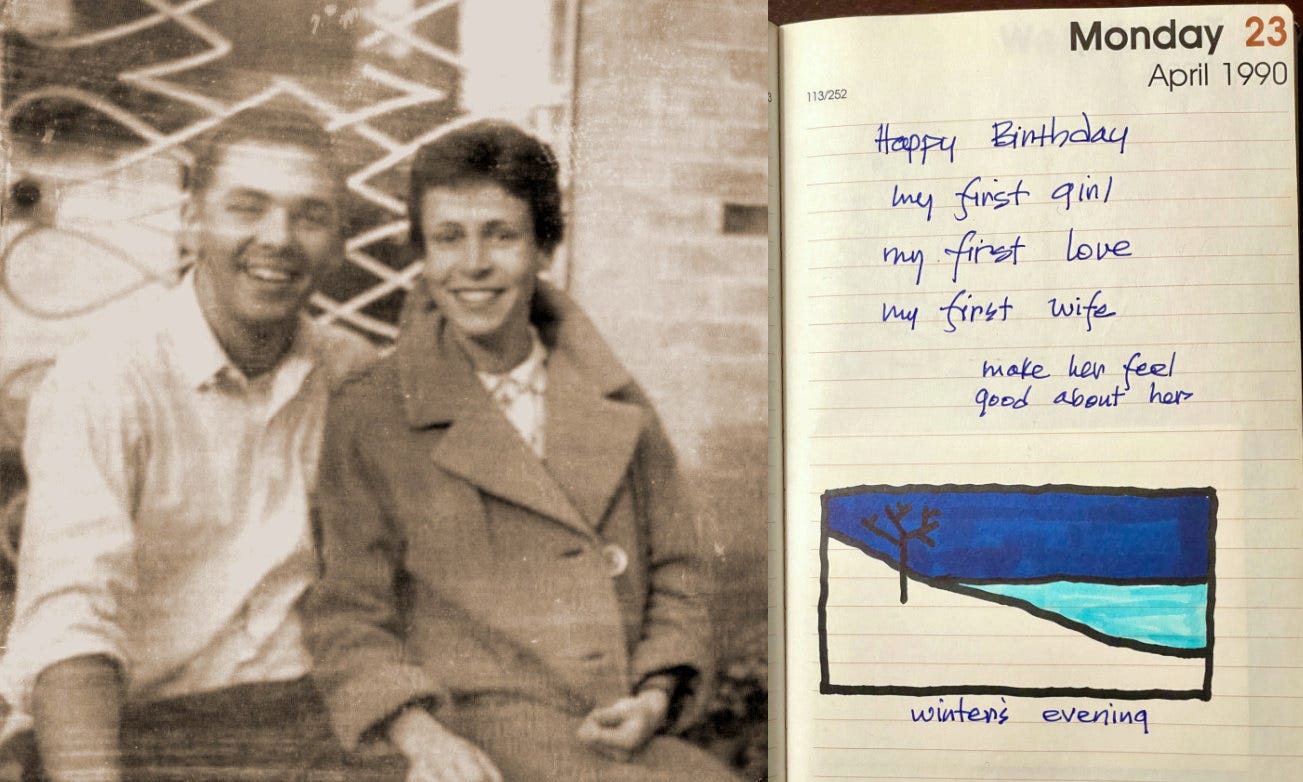 Monday 23
April 1990
113/252
Happy Birthday
my first girl
my first love
my first wife
make her feel
good about her
winter's evening